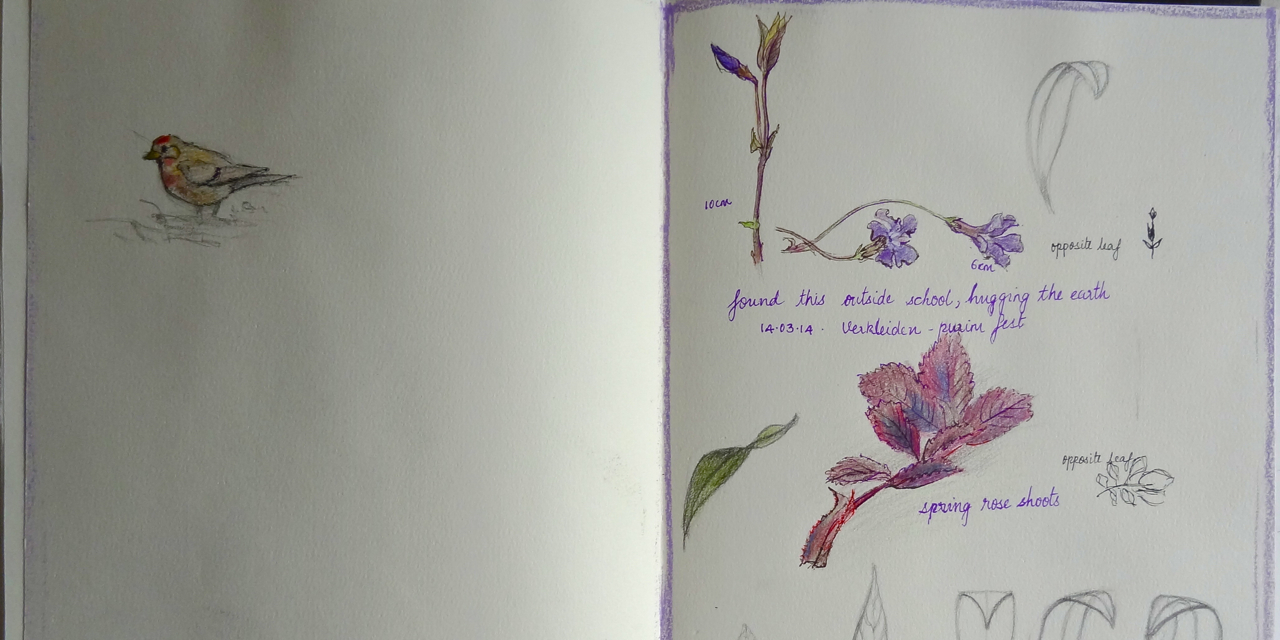 10cm
6cm
opposite leaf
found this outside school, hugging the earth
14.03.14. Verkleiden - purim fest
opposite leaf
spring rose shoots